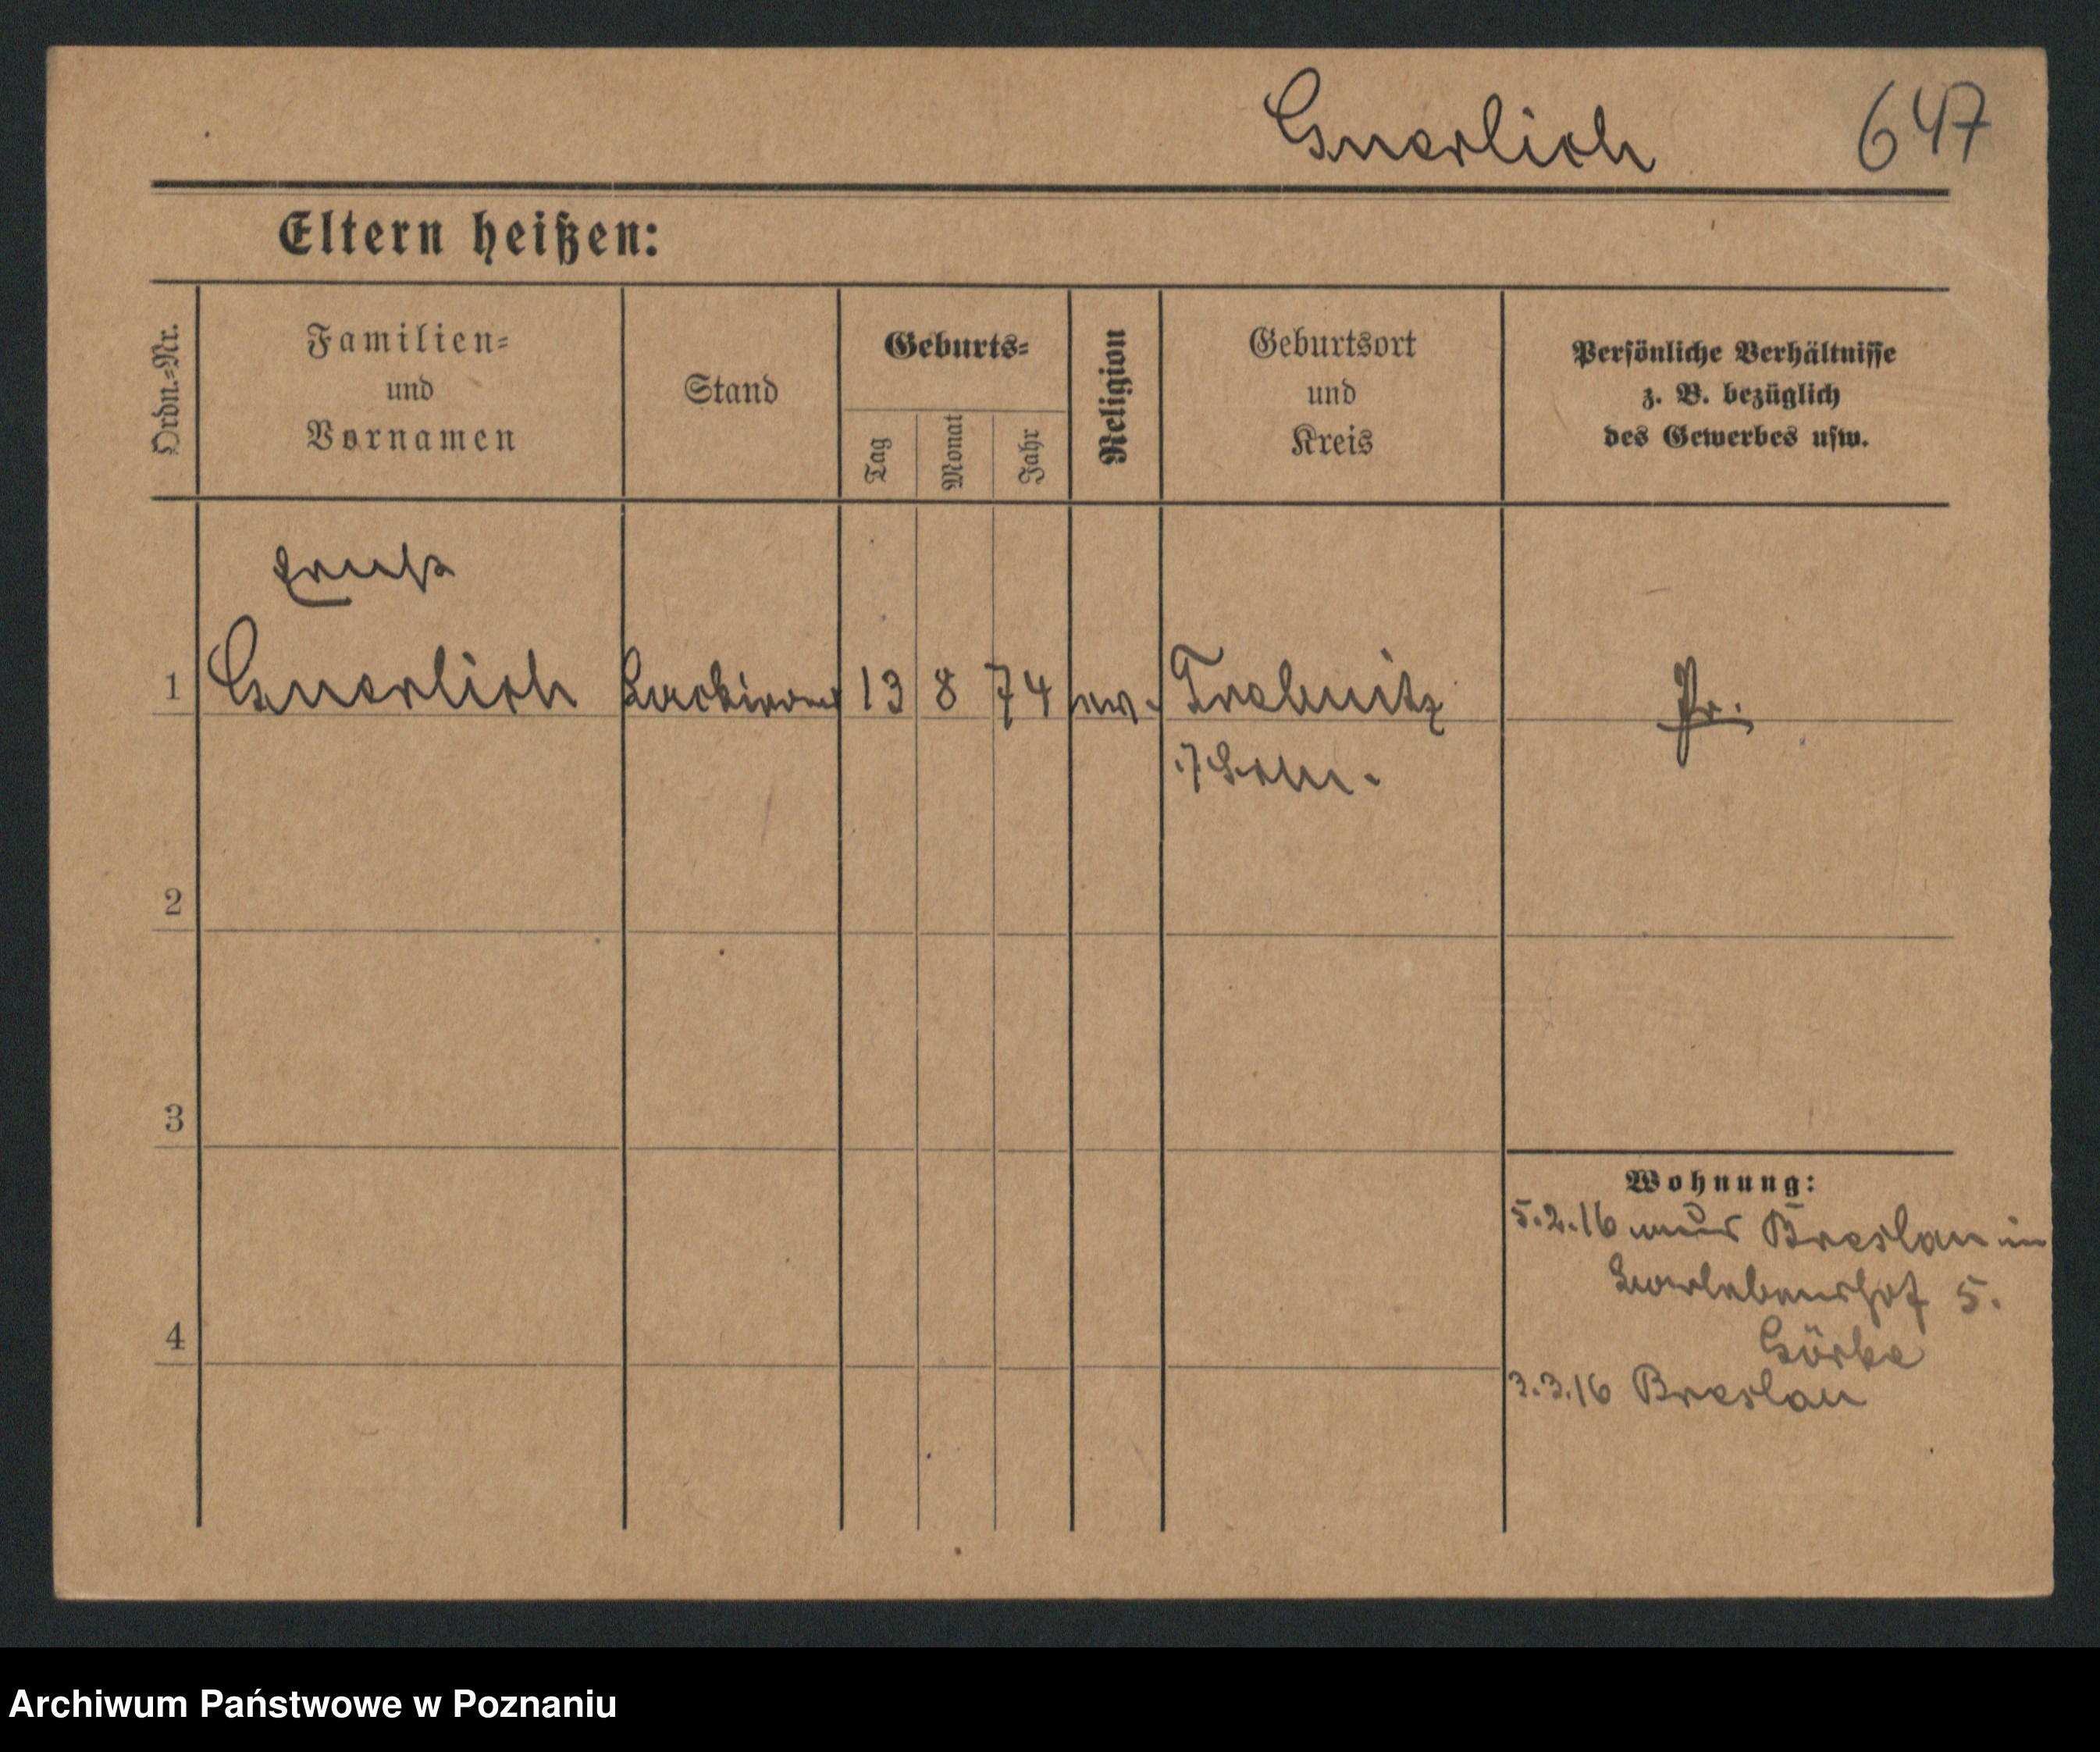 Gnerlich 647
Eltern heißen:
Ordn.=Nr.
Familien=
und
Vornamen
Stand
Geburts=
Tag
Monat
Jahr
Religion
Geburtsort
und
Kreis
Persönliche Verhältnisse
z. B. bezüglich
des Gewerbes usw.
Ernst
1 Gnerlich Lackierer 13 8 74 ev. Trebnitz Pr.
2
3
4
Wohnung:
5.2.16 aus Breslau in
5.
Görke
3.3.16 Breslau
Archiwum Państwowe w Poznaniu